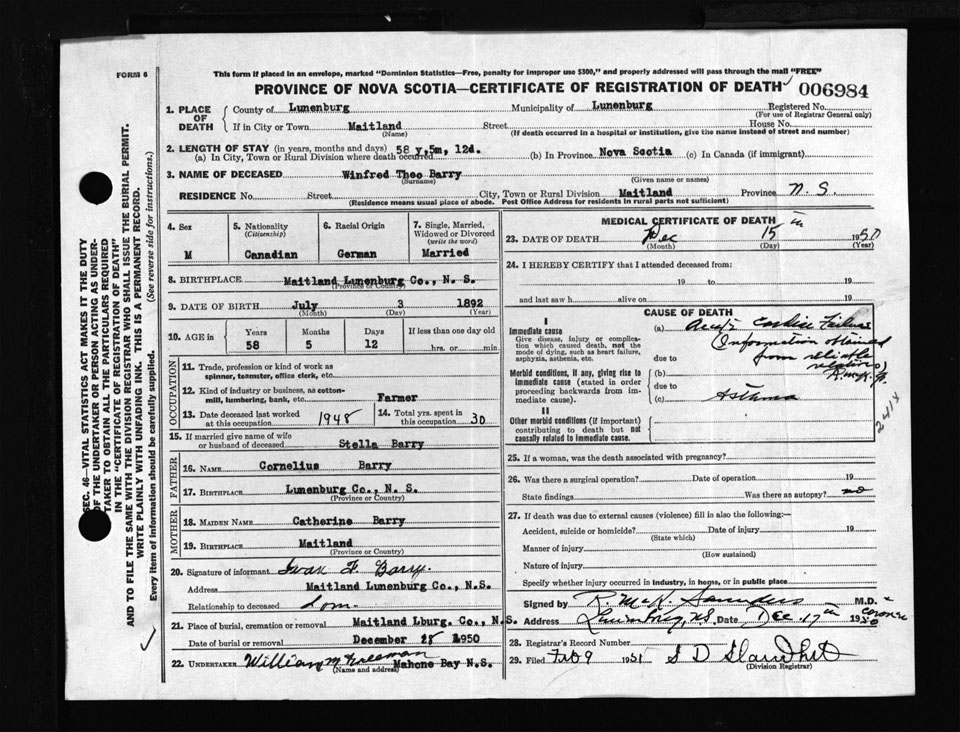 FORM 6
This form if placed in an envelope, marked "Dominion Statistics—Free, penalty for improper use $300," and properly addressed will pass through the mail "FREE"
PROVINCE OF NOVA SCOTIA—CERTIFICATE OF REGISTRATION OF DEATH
006984
1. PLACE OF DEATH
County of Lunenburg Municipality of Lunenburg Registered No.
(For use of Registrar General only)
If in City or Town Maitland Street House No.
(Name) (If death occurred in a hospital or institution, give the name instead of street and number)
2. LENGTH OF STAY (in years, months and days) 58 y, 5m, 12d.
(a) In City, Town or Rural Division where death occurred (b) In Province Nova Scotia (c) In Canada (if immigrant)
3. NAME OF DECEASED Winfred Theo Barry
(Surname) (Given name or names)
RESIDENCE No. Street City, Town or Rural Division Maitland Province N. S.
(Residence means usual place of abode. Post Office Address for residents in rural parts not sufficient)
SEC. 46—VITAL STATISTICS ACT MAKES IT THE DUTY
OF THE UNDERTAKER OR PERSON ACTING AS UNDER-
TAKER TO OBTAIN ALL THE PARTICULARS REQUIRED
IN THE "CERTIFICATE OF REGISTRATION OF DEATH"
AND TO FILE THE SAME WITH THE DIVISION REGISTRAR WHO SHALL ISSUE THE BURIAL PERMIT.
WRITE PLAINLY WITH UNFADING INK. THIS IS A PERMANENT RECORD.
Every item of information should be carefully supplied. (See reverse side for instructions.)
4. Sex
M
5. Nationality
(Citizenship)
Canadian
6. Racial Origin
German
7. Single, Married,
Widowed or Divorced
(write the word)
Married
8. BIRTHPLACE Maitland Lunenburg Co., N. S.
(Province or Country)
9. DATE OF BIRTH July 3 1892
(Month) (Day) (Year)
10. AGE in
Years Months Days If less than one day old
58 5 12 hrs. or min.
OCCUPATION
11. Trade, profession or kind of work as
spinner, teamster, office clerk, etc.
12. Kind of industry or business, as cotton-
mill, lumbering, bank, etc. Farmer
13. Date deceased last worked
at this occupation 1948
14. Total yrs. spent in
this occupation 30
15. If married give name of wife
or husband of deceased Stella Barry
FATHER
16. NAME Cornelius Barry
17. BIRTHPLACE Lunenburg Co., N. S.
(Province or Country)
MOTHER
18. MAIDEN NAME Catherine Barry
19. BIRTHPLACE Maitland
(Province or Country)
20. Signature of informant Ivan F. Barry.
Address Maitland Lunenburg Co., N.S.
Relationship to deceased Son.
21. Place of burial, cremation or removal Maitland Lburg. Co., N.S.
Date of burial or removal December 18 1950
22. UNDERTAKER William M Freeman Mahone Bay N.S.
(Name and address)
MEDICAL CERTIFICATE OF DEATH
23. DATE OF DEATH Dec 15 1950
(Month) (Day) (Year)
24. I HEREBY CERTIFY that I attended deceased from:
19 to 19
and last saw h alive on 19
CAUSE OF DEATH
I
Immediate cause
Give disease, injury or complica-
tion which caused death, not the
mode of dying, such as heart failure,
asphyxia, asthenia, etc.
(a) Acute Cardiac Failure
(Information obtained
from reliable
relations)
due to
Morbid conditions, if any, giving rise to
immediate cause (stated in order
proceeding backwards from im-
mediate cause).
(b)
due to
(c) Asthma
II
Other morbid conditions (if important)
contributing to death but not
causally related to immediate cause.
25. If a woman, was the death associated with pregnancy?
26. Was there a surgical operation? Date of operation 19
State findings Was there an autopsy? no
27. If death was due to external causes (violence) fill in also the following:—
Accident, suicide or homicide? Date of injury 19
(State which)
Manner of injury
(How sustained)
Nature of injury
Specify whether injury occurred in industry, in home, or in public place
Signed by R. McK. Saunders M.D. coroner
Address Lunenburg, N.S. Date Dec. 17 1950
28. Registrar's Record Number
29. Filed Feb 9 1951
(Division Registrar)